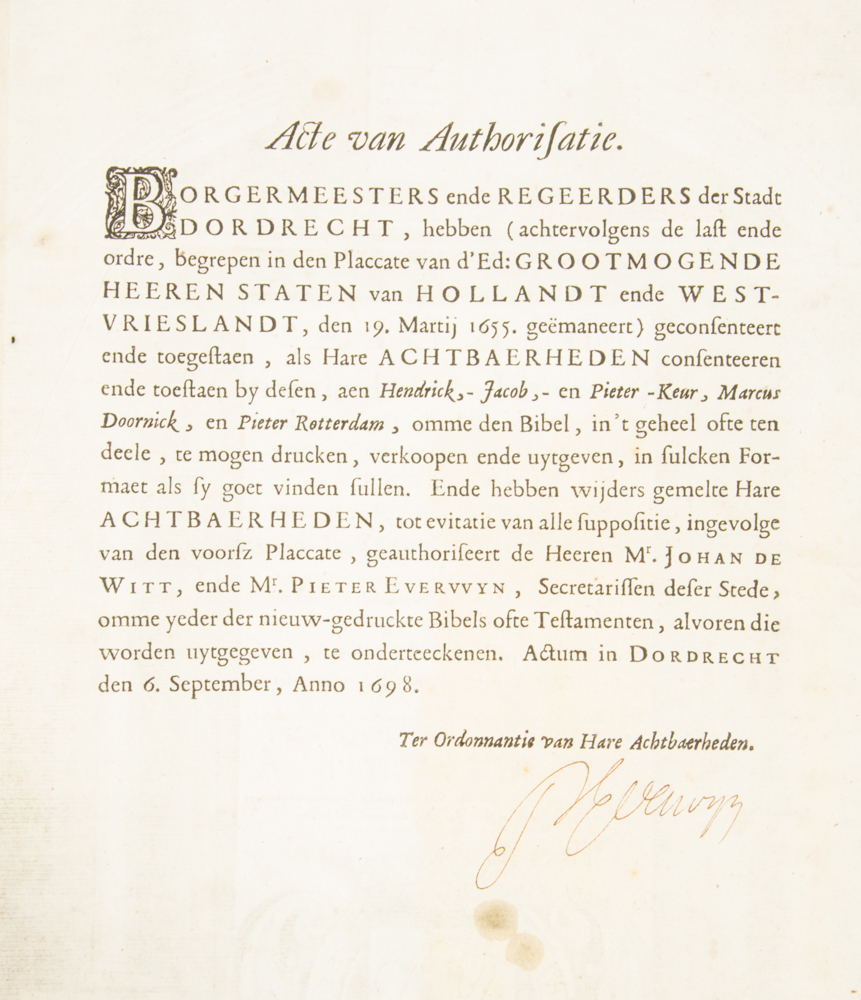 Acte van Authoriſatie.
BORGERMEESTERS ende REGEERDERS der Stadt
DORDRECHT, hebben (achtervolgens de laſt ende
ordre, begrepen in den Placcate van d'Ed: GROOTMOGENDE
HEEREN STATEN van HOLLANDT ende WEST-
VRIESLANDT, den 19. Martij 1655. geëmaneert) geconſenteert
ende toegeſtaen, als Hare ACHTBAERHEDEN conſenteeren
ende toeſtaen by deſen, aen Hendrick,- Jacob,- en Pieter -Keur, Marcus
Doornick, en Pieter Rotterdam, omme den Bibel, in't geheel ofte ten
deele, te mogen drucken, verkoopen ende uytgeven, in ſulcken For-
maet als ſy goet vinden ſullen. Ende hebben wijders gemelte Hare
ACHTBAERHEDEN, tot evitatie van alle ſuppoſitie, ingevolge
van den voorſz Placcate, geauthoriſeert de Heeren Mr. JOHAN DE
WITT, ende Mr. PIETER EVERVVYN, Secretariſſen deſer Stede,
omme yeder der nieuw-gedruckte Bibels ofte Teſtamenten, alvoren die
worden uytgegeven, te onderteeckenen. Actum in DORDRECHT
den 6. September, Anno 1698.
Ter Ordonnantie van Hare Achtbaerheden.
P Everwyn